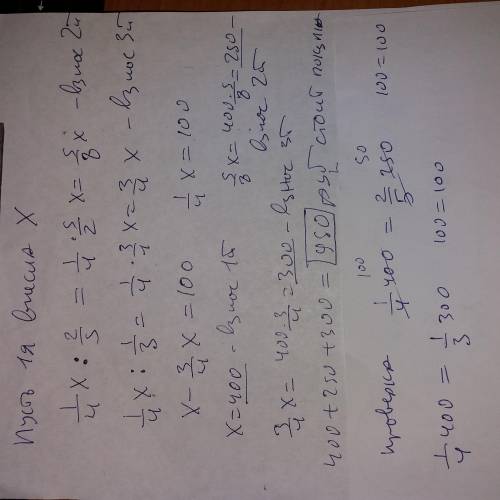 Пусть 1я внесла X
1/4 x : 2/5 = 1/4 · 5/2 x = 5/8 x - взнос 2п
1/4 x : 1/3 = 1/4 · 3/1 x = 3/4 x - взнос 3п
x - 3/4 x = 100 1/4 x = 100
x = 400 - взнос 1п 5/8 x = 400 · 5/8 = 250 -
взнос 2п
3/4 x = 400 · 3/4 = 300 - взнос 3п
400 + 250 + 300 = 950 руб стоит покупка
проверка 1/4 400 = 2/5 250 100 = 100
100 50
1/4 400 = 1/3 300 100 = 100